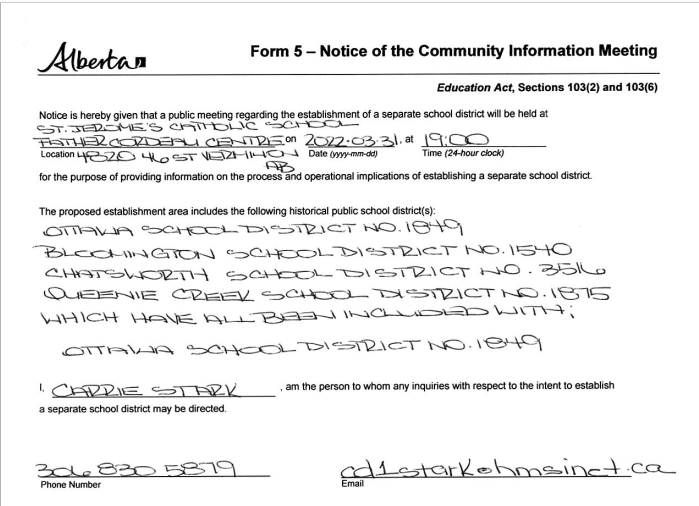 Alberta
Form 5 – Notice of the Community Information Meeting
Education Act, Sections 103(2) and 103(6)
Notice is hereby given that a public meeting regarding the establishment of a separate school district will be held at
ST. JEROME'S CATHOLIC SCHOOL
FATHER CORDEAU CENTRE on 2022-03-31. at 19:00
Location 4820 46 ST VERMILION Date (yyyy-mm-dd) Time (24-hour clock)
AB
for the purpose of providing information on the process and operational implications of establishing a separate school district.
The proposed establishment area includes the following historical public school district(s):
OTTAWA SCHOOL DISTRICT NO. 1849
BLOOMINGTON SCHOOL DISTRICT NO. 1540
CHATSWORTH SCHOOL DISTRICT NO. 3516
QUEENIE CREEK SCHOOL DISTRICT NO. 1875
WHICH HAVE ALL BEEN INCLUDED WITH;
OTTAWA SCHOOL DISTRICT NO. 1849
I, CARRIE STARK, am the person to whom any inquiries with respect to the intent to establish
a separate school district may be directed.
306 830 5879 cd1stark@hmsinet.ca
Phone Number Email